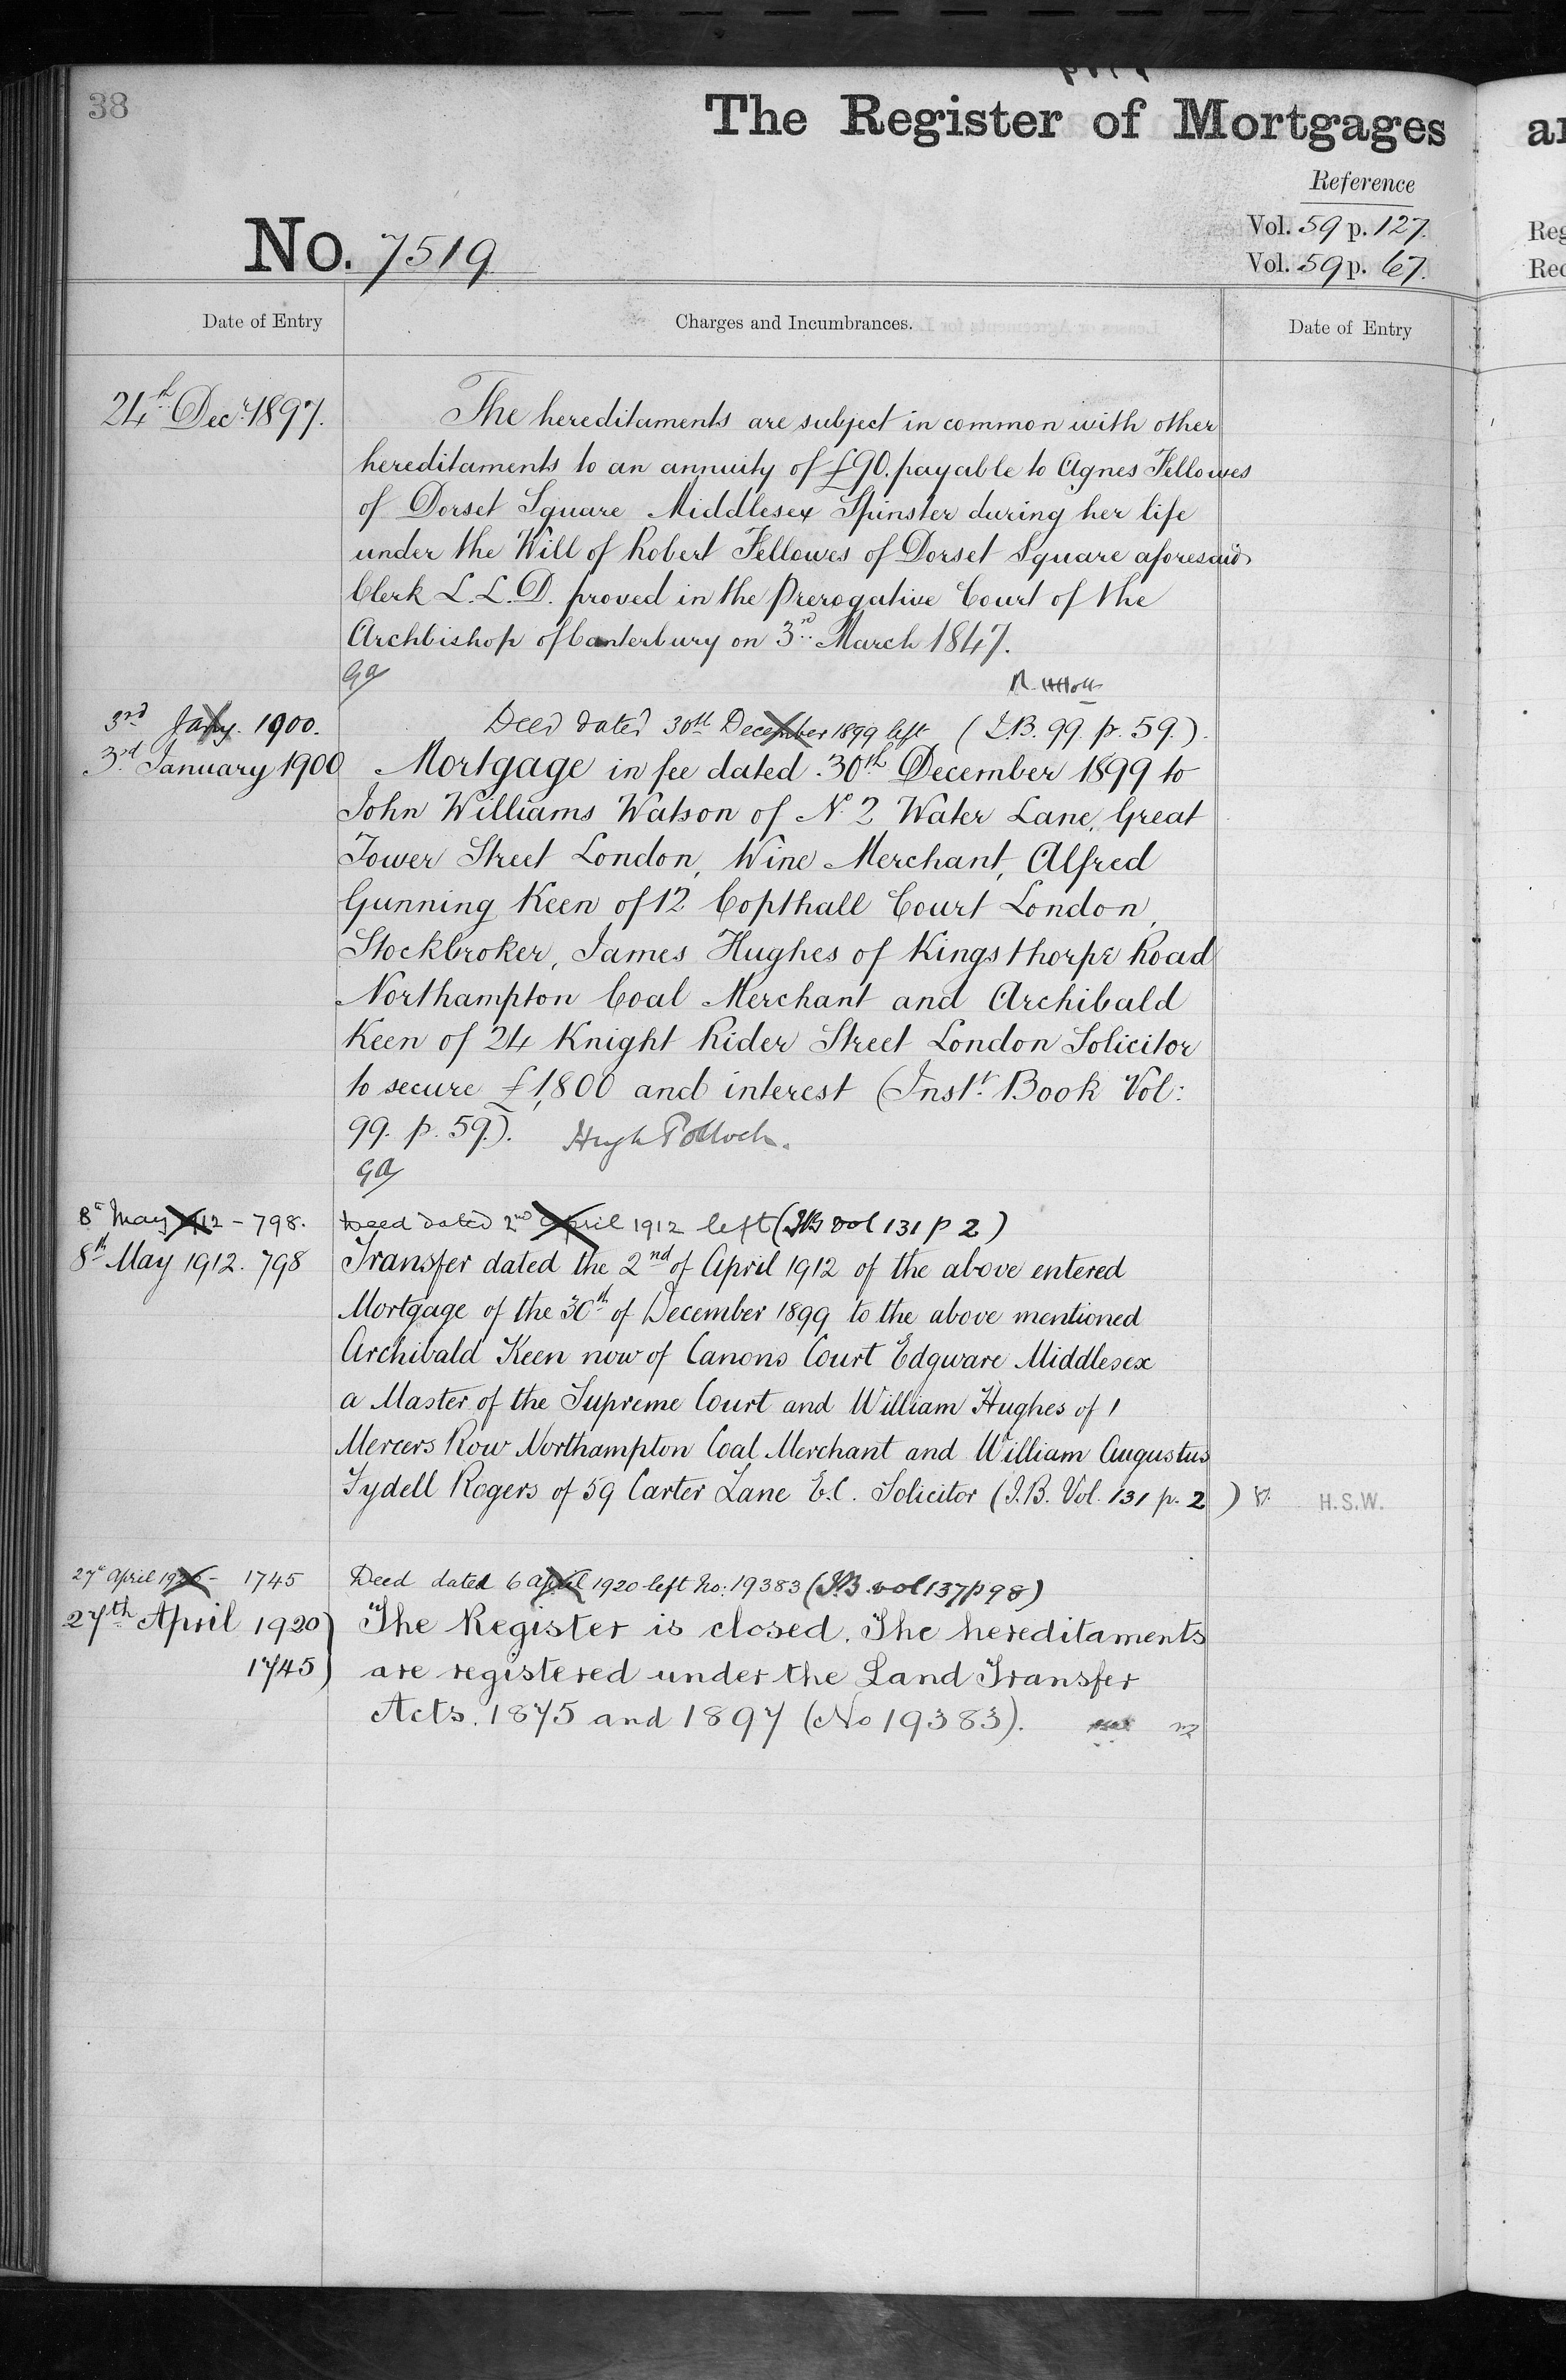 38
The Register of Mortgages
Reference
Vol. 59 p. 127.
Vol. 59 p. 67.
No. 7519
Date of Entry
Charges and Incumbrances.
Date of Entry
24th Decr. 1897.
The hereditaments are subject in common with other
hereditaments to an annuity of £90. payable to Agnes Fellowes
of Dorset Square Middlesex Spinster during her life
under the Will of Robert Fellowes of Dorset Square aforesaid
Clerk L.L.D. proved in the Prerogative Court of the
Archbishop of Canterbury on 3rd March 1847.
3rd Jany. 1900. Deed dated 30th December 1899 left (I.B. 99. p. 59.).
3rd January 1900 Mortgage in fee dated 30th December 1899 to
John Williams Watson of No. 2 Water Lane, Great
Tower Street London, Wine Merchant, Alfred
Gunning Keen of 12 Copthall Court London,
Stockbroker, James Hughes of Kingsthorpe Road
Northampton Coal Merchant and Archibald
Keen of 24 Knight Rider Street London Solicitor
to secure £1,800 and interest (Instr. Book Vol:
99. p. 59.). Hugh Pollock.
8th May 1912 - 798. Deed dated 2nd April 1912 left (IB vol 131 p 2)
8th May 1912. 798 Transfer dated the 2nd of April 1912 of the above entered
Mortgage of the 30th of December 1899 to the above mentioned
Archibald Keen now of Canons Court Edgware Middlesex
a Master of the Supreme Court and William Hughes of 1
Mercers Row Northampton Coal Merchant and William Augustus
Tydell Rogers of 59 Carter Lane E.C. Solicitor (I.B. Vol. 131 p. 2) H.S.W.
27th April 1920 - 1745 Deed dated 6 April 1920 left No: 19383 (IB vol 137 p 98)
27th April 1920) The Register is closed. The hereditaments
1745) are registered under the Land Transfer
Acts. 1875 and 1897 (No 19383).